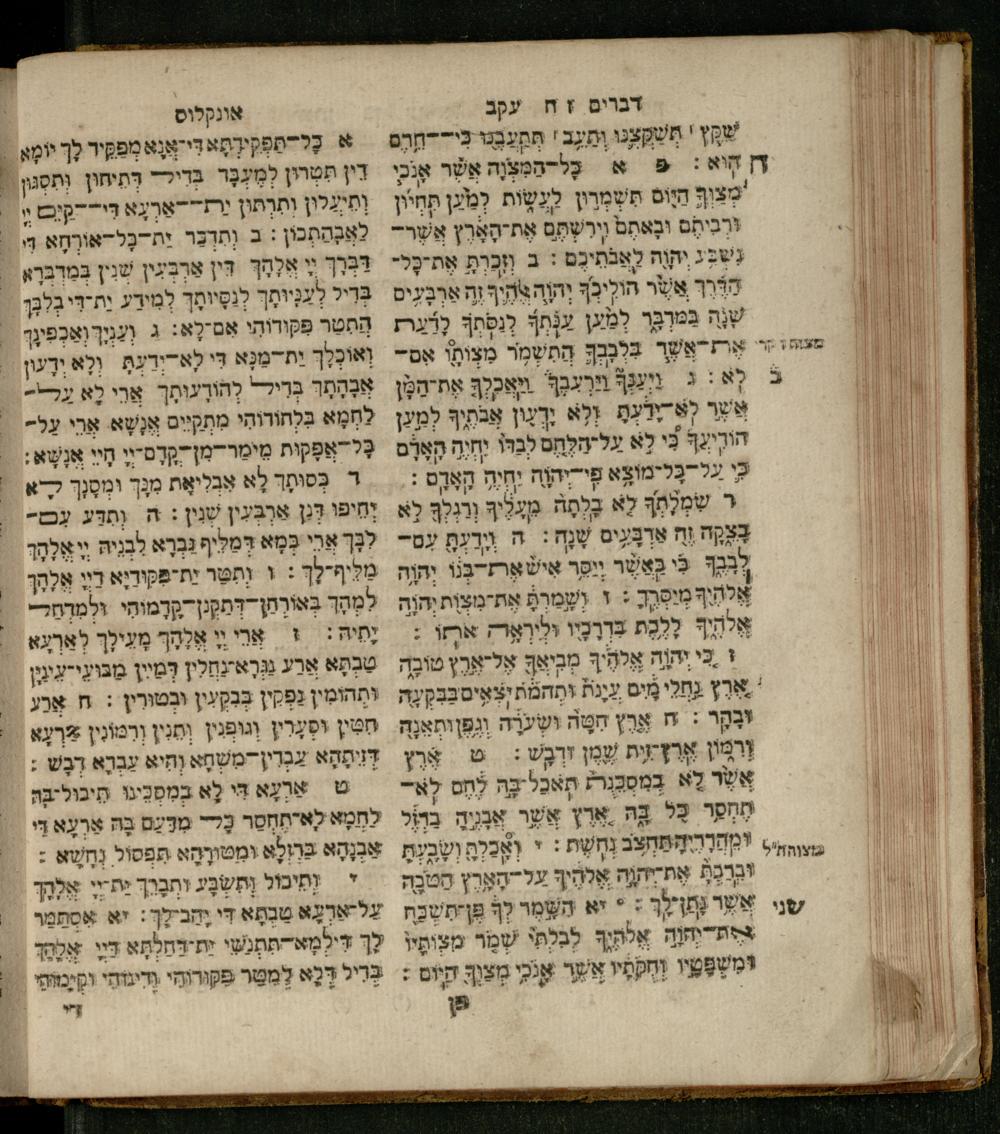 דברים ז ח עקב
שַׁקֵּץ ׀ תְּשַׁקְּצֶנּוּ וְתַעֵב ׀ תְּתַעֲבֶנּוּ כִּי־חֵרֶם
הוּא : פ א כָּל־הַמִּצְוָה אֲשֶׁר אָנֹכִי
מְצַוְּךָ הַיּוֹם תִּשְׁמְרוּן לַעֲשׂוֹת לְמַעַן תִּחְיוּן
וּרְבִיתֶם וּבָאתֶם וִירִשְׁתֶּם אֶת־הָאָרֶץ אֲשֶׁר־
נִשְׁבַּע יְהוָה לַאֲבֹתֵיכֶם : ב וְזָכַרְתָּ אֶת־כָּל־
הַדֶּרֶךְ אֲשֶׁר הוֹלִיכֲךָ יְהוָה אֱלֹהֶיךָ זֶה אַרְבָּעִים
שָׁנָה בַּמִּדְבָּר לְמַעַן עַנֹּתְךָ לְנַסֹּתְךָ לָדַעַת
אֶת־אֲשֶׁר בִּלְבָבְךָ הֲתִשְׁמֹר מִצְוֹתָו אִם־
לֹא : ג וַיְעַנְּךָ וַיַּרְעִבֶךָ וַיַּאֲכִלְךָ אֶת־הַמָּן
אֲשֶׁר לֹא־יָדַעְתָּ וְלֹא יָדְעוּן אֲבֹתֶיךָ לְמַעַן
הוֹדִיעֲךָ כִּי לֹא עַל־הַלֶּחֶם לְבַדּוֹ יִחְיֶה הָאָדָם
כִּי עַל־כָּל־מוֹצָא פִי־יְהוָה יִחְיֶה הָאָדָם :
ד שִׂמְלָתְךָ לֹא בָלְתָה מֵעָלֶיךָ וְרַגְלְךָ לֹא
בָצֵקָה זֶה אַרְבָּעִים שָׁנָה : ה וְיָדַעְתָּ עִם־
לְבָבֶךָ כִּי כַּאֲשֶׁר יְיַסֵּר אִישׁ אֶת־בְּנוֹ יְהוָה
אֱלֹהֶיךָ מְיַסְּרֶךָּ : ו וְשָׁמַרְתָּ אֶת־מִצְוֹת יְהוָה
אֱלֹהֶיךָ לָלֶכֶת בִּדְרָכָיו וּלְיִרְאָה אֹתוֹ :
ז כִּי יְהוָה אֱלֹהֶיךָ מְבִיאֲךָ אֶל־אֶרֶץ טוֹבָה
אֶרֶץ נַחֲלֵי מָיִם עֲיָנֹת וּתְהֹמֹת יֹצְאִים בַּבִּקְעָה
וּבָהָר : ח אֶרֶץ חִטָּה וּשְׂעֹרָה וְגֶפֶן וּתְאֵנָה
וְרִמּוֹן אֶרֶץ־זֵית שֶׁמֶן וּדְבָשׁ : ט אֶרֶץ
אֲשֶׁר לֹא בְמִסְכֵּנֻת תֹּאכַל־בָּהּ לֶחֶם לֹא־
תֶחְסַר כֹּל בָּהּ אֶרֶץ אֲשֶׁר אֲבָנֶיהָ בַרְזֶל
וּמֵהֲרָרֶיהָ תַּחְצֹב נְחֹשֶׁת : י וְאָכַלְתָּ וְשָׂבָעְתָּ
וּבֵרַכְתָּ אֶת־יְהוָה אֱלֹהֶיךָ עַל־הָאָרֶץ הַטֹּבָה
אֲשֶׁר נָתַן־לָךְ : יא הִשָּׁמֶר לְךָ פֶּן־תִּשְׁכַּח
אֶת־יְהוָה אֱלֹהֶיךָ לְבִלְתִּי שְׁמֹר מִצְוֹתָיו
וּמִשְׁפָּטָיו וְחֻקֹּתָיו אֲשֶׁר אָנֹכִי מְצַוְּךָ הַיּוֹם :
פן
ח
מצותיו קרי
ב
שני
אונקלוס
א כָּל־תַּפְקִידְתָּא דִּי־אֲנָא מְפַקֵּיד לָךְ יוֹמָא
דֵין תִּטְּרוּן לְמֶעְבַּד בְּדִיל דְּתֵיחוּן וְתִסְגּוּן
וְתֵיעֲלוּן וְתֵרְתוּן יָת־אַרְעָא דִּי־קַיֵּם יְיָ
לַאֲבָהַתְכוֹן : ב וְתִדְכַּר יָת־כָּל־אוֹרְחָא דִּי
דַּבְּרָךְ יְיָ אֱלָהָךְ דֵּין אַרְבְּעִין שְׁנִין בְּמַדְבְּרָא
בְּדִיל לְעַנָּיוּתָךְ לְנַסָּיוּתָךְ לְמִידַע יָת־דִּי בְלִבָּךְ
הֲתִטַּר פִּקּוּדוֹהִי אִם־לָא : ג וְעַנְיָךְ וְאַכְפִינָךְ
וְאוֹכְלָךְ יָת־מַנָּא דִּי לָא־יְדַעְתָּ וְלָא יְדָעוּן
אֲבָהָתָךְ בְּדִיל לְהוֹדָעוּתָךְ אֲרֵי לָא עַל־
לַחְמָא בִּלְחוֹדוֹהִי מִתְקַיֵּים אֱנָשָׁא אֲרֵי עַל־
כָּל־אַפָּקוּת מֵימַר־מִן־קֳדָם־יְיָ חָיֵי אֱנָשָׁא :
ד כְּסוּתָךְ לָא אִבְלִיאַת מִנָּךְ וּמְסָנָךְ לָא
יְחִיפוּ דְּנַן אַרְבְּעִין שְׁנִין : ה וְתִדַּע עִם־
לִבָּךְ אֲרֵי כְּמָא דְּמַלֵּיף גַּבְרָא לִבְנֵיהּ יְיָ אֱלָהָךְ
מַלֵּיף־לָךְ : ו וְתִטַּר יָת־פִּקּוּדַיָּא דַיְיָ אֱלָהָךְ
לִמְהַךְ בְּאוֹרְחָן־דְּתַקְנָן־קֳדָמוֹהִי וּלְמִדְחַל
יָתֵיהּ : ז אֲרֵי יְיָ אֱלָהָךְ מָעֵילָךְ לְאַרְעָא
טָבְתָא אֲרַע נַגְּדָא־נַחֲלִין דְּמַיִּין מַבּוּעֵי־עֵינָוָן
וּתְהוֹמִין נָפְקִין בְּבִקְעִין וּבְטוּרִין : ח אֲרַע
חִטִּין וּסְעָרִין וְגוּפְנִין וְתֵנִין וְרִמּוֹנִין אַרְעָא
דְּזֵיתָהָא עָבְדִין־מִשְׁחָא וְהִיא עָבְדָא דְבָשׁ :
ט אַרְעָא דִּי לָא בְמִסְכֵּינוּ תֵיכוּל־בַּהּ
לַחְמָא לָא־תֶחְסַר כָּל מִדַּעַם בַּהּ אַרְעָא דִּי
אַבְנָהָא בַּרְזְלָא וּמִטּוּרָהָא תִּפְסוֹל נְחָשָׁא :
י וְתֵיכוּל וְתִשְׂבַּע וּתְבָרֵךְ יָת־יְיָ אֱלָהָךְ
עַל־אַרְעָא טָבְתָא דִּי יְהַב־לָךְ : יא אִסְתַּמַּר
לָךְ דִּילְמָא־תִּתְנְשֵׁי יָת־דַּחַלְתָּא דַיְיָ אֱלָהָךְ
בְּדִיל דְּלָא לְמִטַּר פִּקּוּדוֹהִי וְדִינוֹהִי וּקְיָמוֹהִי
די